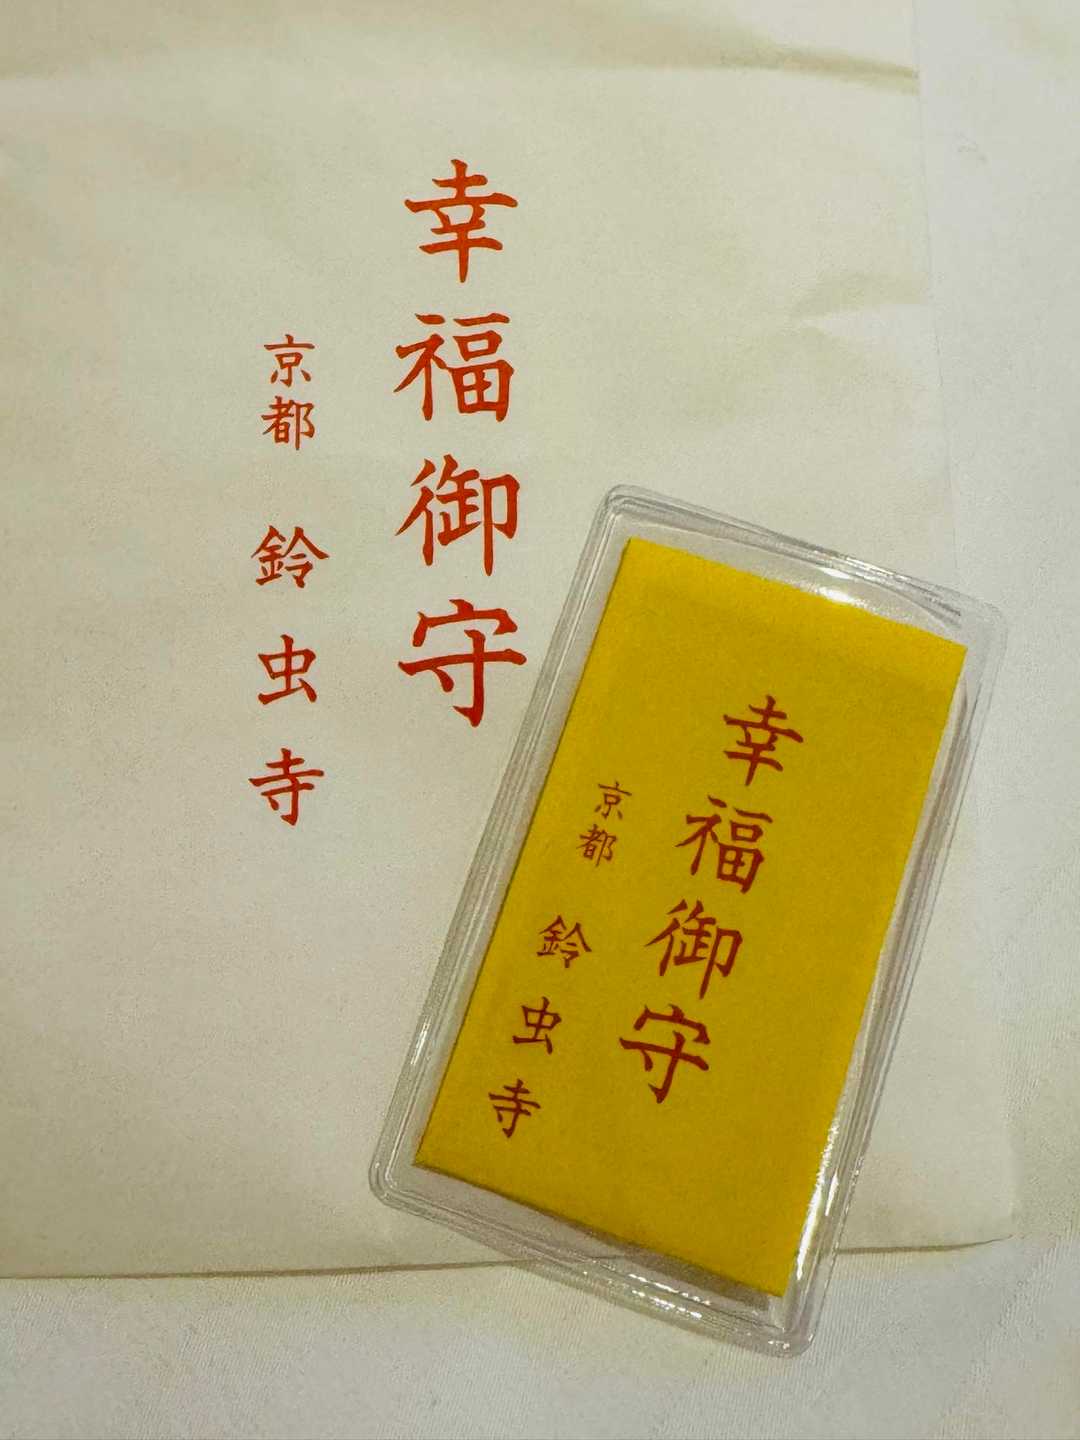 幸福御守
京都 鈴虫寺
幸福御守
京都 鈴虫寺